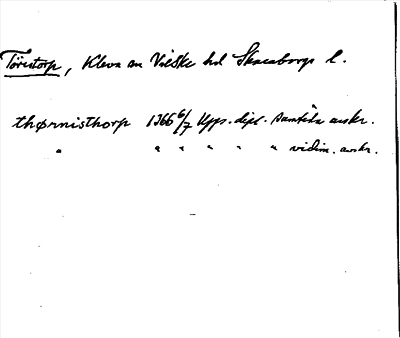 Törestorp, Kleva sn Vilske hd Skaraborgs l.
thørnisthorp 1366 6/7 Upps. dipl. samtida avskr.
" " " " " " vidim. avskr.